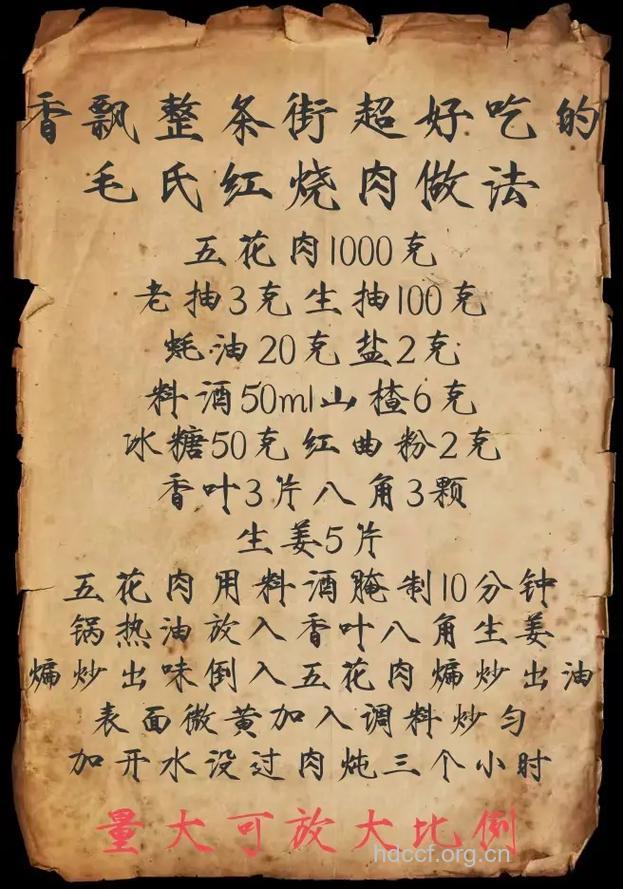 香飘整条街超好吃的
毛氏红烧肉做法
五花肉1000克
老抽3克生抽100克
蚝油20克盐2克
料酒50ml山楂6克
冰糖50克红曲粉2克
香叶3片八角3颗
生姜5片
五花肉用料酒腌制10分钟
锅热油放入香叶八角生姜
煸炒出味倒入五花肉煸炒出油
表面微黄加入调料炒匀
加开水没过肉炖三个小时
量大可放大比例
hdccf.org.cn